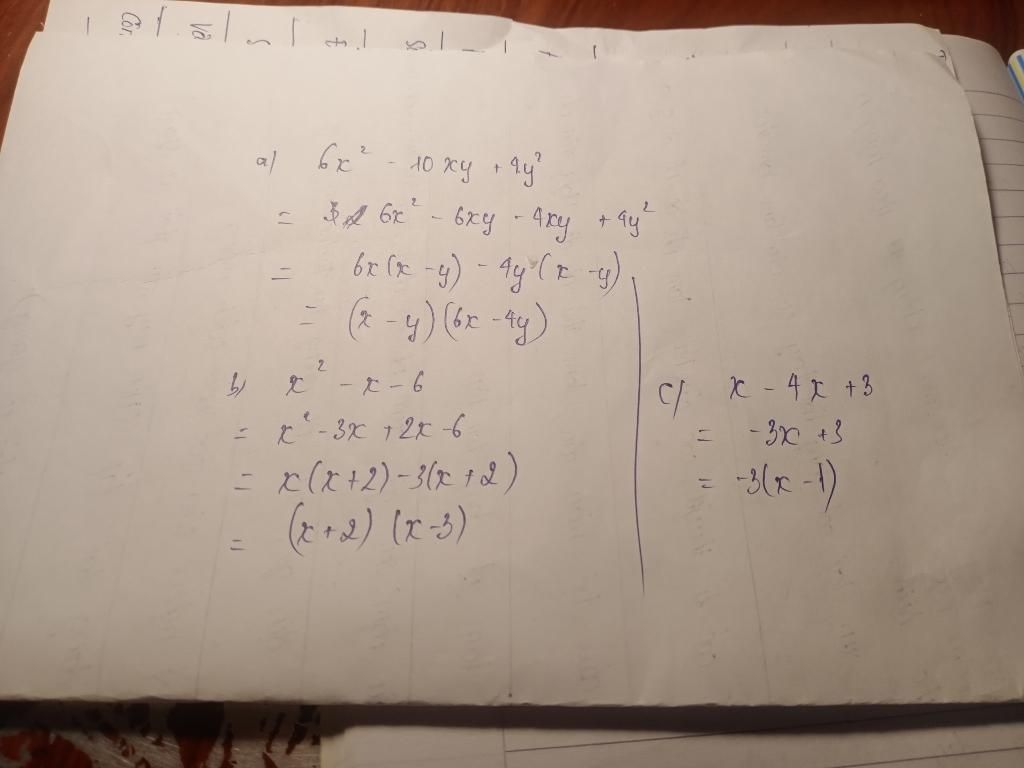 a) 6x² - 10xy + 4y²
= 6x² - 6xy - 4xy + 4y²
= 6x(x - y) - 4y(x - y)
= (x - y)(6x - 4y)
b) x² - x - 6
= x² - 3x + 2x - 6
= x(x + 2) - 3(x + 2)
= (x + 2) (x - 3)
c) x - 4x + 3
= -3x + 3
= -3(x - 1)